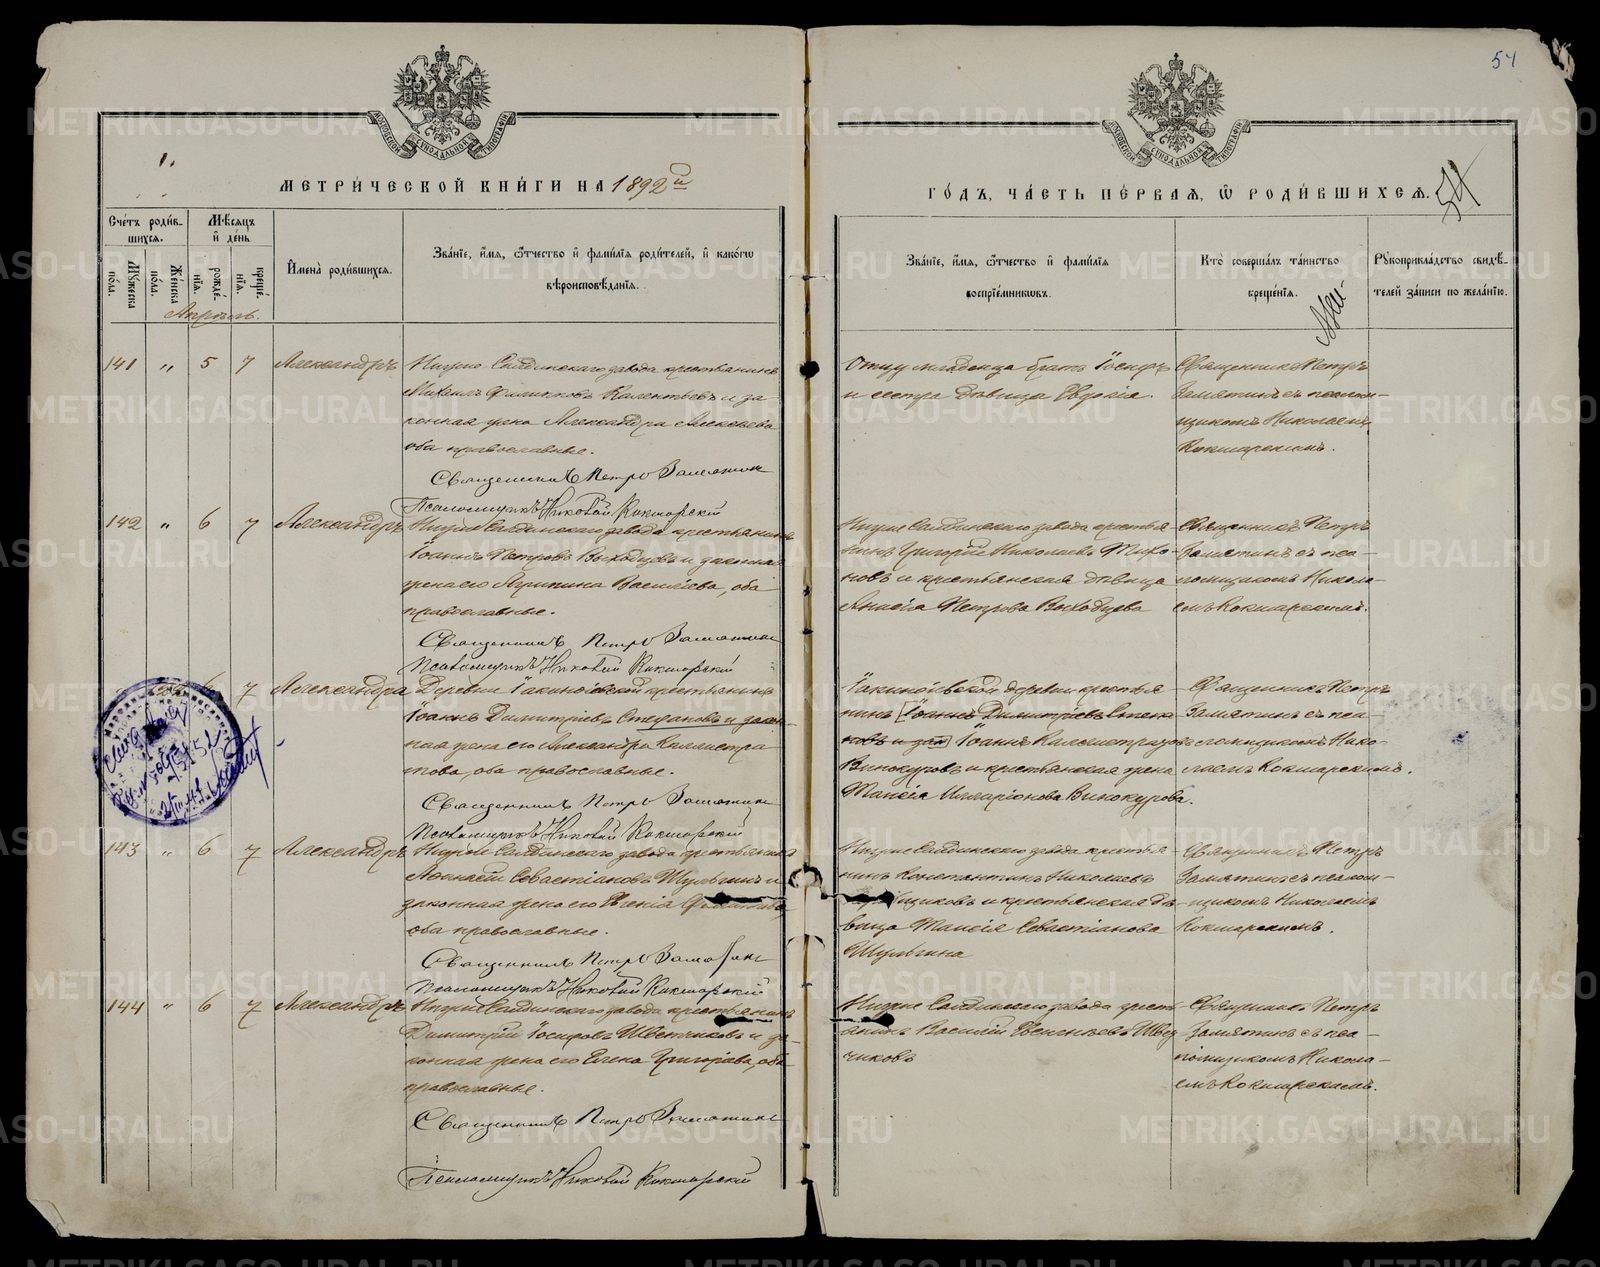 54
МОСКОВСКОЙ СѴНОДАЛЬНОЙ ТИПОГРАФІИ
МОСКОВСКОЙ СѴНОДАЛЬНОЙ ТИПОГРАФІИ
1.
МЕТРИ́ЧЕСКОЙ КНИ́ГИ НА 1892й
ГО́ДЪ, ЧА́СТЬ ПЕ́РВАЯ, Ѽ РОДИ́ВШИХСЯ.
54
Сче́тъ роди́в-
шихся.
Мѣ́сяцъ
и҆ де́нь
Мꙋ́жеска
по́ла.
Же́нска
по́ла.
рожде́-
нїя.
креще́-
нїя.
И҆мена̀ роди́вшихся.
Зва́нїе, и҆́мя, ѻ҆́тчество и҆ фами́лїя роди́телей, и҆ како́гѡ
вѣроисповѣ́данїя.
Зва́нїе, и҆́мя, ѻ҆́тчество и҆ фами́лїя
воспрїе́мникѡвъ.
Кто̀ соверша́лъ та́инство
креще́нїя.
Рꙋкоприкла́дство свидѣ́-
телей за́писи по жела́нїю.
Апрѣль.
141 " 5 7 Александръ
Нижне Салдинскаго завода крестьянинъ
Михаилъ Филипповъ Калентьевъ и за-
конная жена Александра Алексѣева
оба православные.
Священникъ Петръ Замятинъ
Псаломщикъ Николай Кокшарскій
Отцу младенца братъ Іосифъ
и сестра дѣвица Евдокія.
Священникъ Петръ
Замятинъ съ псалом-
щикомъ Николаемъ
Кокшарскимъ.
142 " 6 7 Александръ
Нижне Салдинскаго завода крестьянинъ
Іоаннъ Петровъ Выходцевъ и законная
жена его Агрипина Василіева, оба
православные.
Священникъ Петръ Замятинъ
Псаломщикъ Николай Кокшарскій
Нижне Салдинскаго завода крестья-
нинъ Григорій Николаевъ Тихо-
новъ и крестьянская дѣвица
Анисія Петрова Выходцева
Священникъ Петръ
Замятинъ съ пса-
ломщикомъ Никола-
емъ Кокшарскимъ.
6 7 Александра
Деревни Іакинѳіевской крестьянинъ
Іоаннъ Димитріевъ Стефановъ и закон-
ная жена его Александра Каллистра-
това, оба православные.
Священникъ Петръ Замятинъ
Псаломщикъ Николай Кокшарскій
Іакинѳіевской деревни крестья-
нинъ [Іоаннъ Димитріевъ Стефа-
новъ и зак] Іоаннъ Каллистратовъ
Винокуровъ и крестьянская жена
Таисія Илларіонова Винокурова.
Священникъ Петръ
Замятинъ съ пса-
ломщикомъ Нико-
лаемъ Кокшарскимъ.
143 " 6 7 Александръ
Нижне Салдинскаго завода крестьянинъ
Аѳанасій Севастіановъ Шульгинъ и
законная жена его Евгенія
оба православные.
Священникъ Петръ Замятинъ
Псаломщикъ Николай Кокшарскій
Нижне Салдинскаго завода крестья-
нинъ Константинъ Николаевъ
щиковъ и крестьянская дѣ-
вица Таисія Севастіанова
Шульгина
Священникъ Петръ
Замятинъ съ псалом-
щикомъ Николаемъ
Кокшарскимъ.
144 " 6 7 Александръ
Нижне Салдинскаго завода крестьянинъ
Димитрій Іосифовъ Цвѣтчиковъ и за-
конная жена его Елена Григоріева, оба
православные.
Священникъ Петръ Замятинъ
Псаломщикъ Николай Кокшарскій
Нижне Салдинскаго завода кресть-
янинъ Василій Евгеніевъ Цвѣт-
чиковъ
Священникъ Петръ
Замятинъ съ пса-
ломщикомъ Никола-
емъ Кокшарскимъ.
METRIKI.GASO-URAL.RU